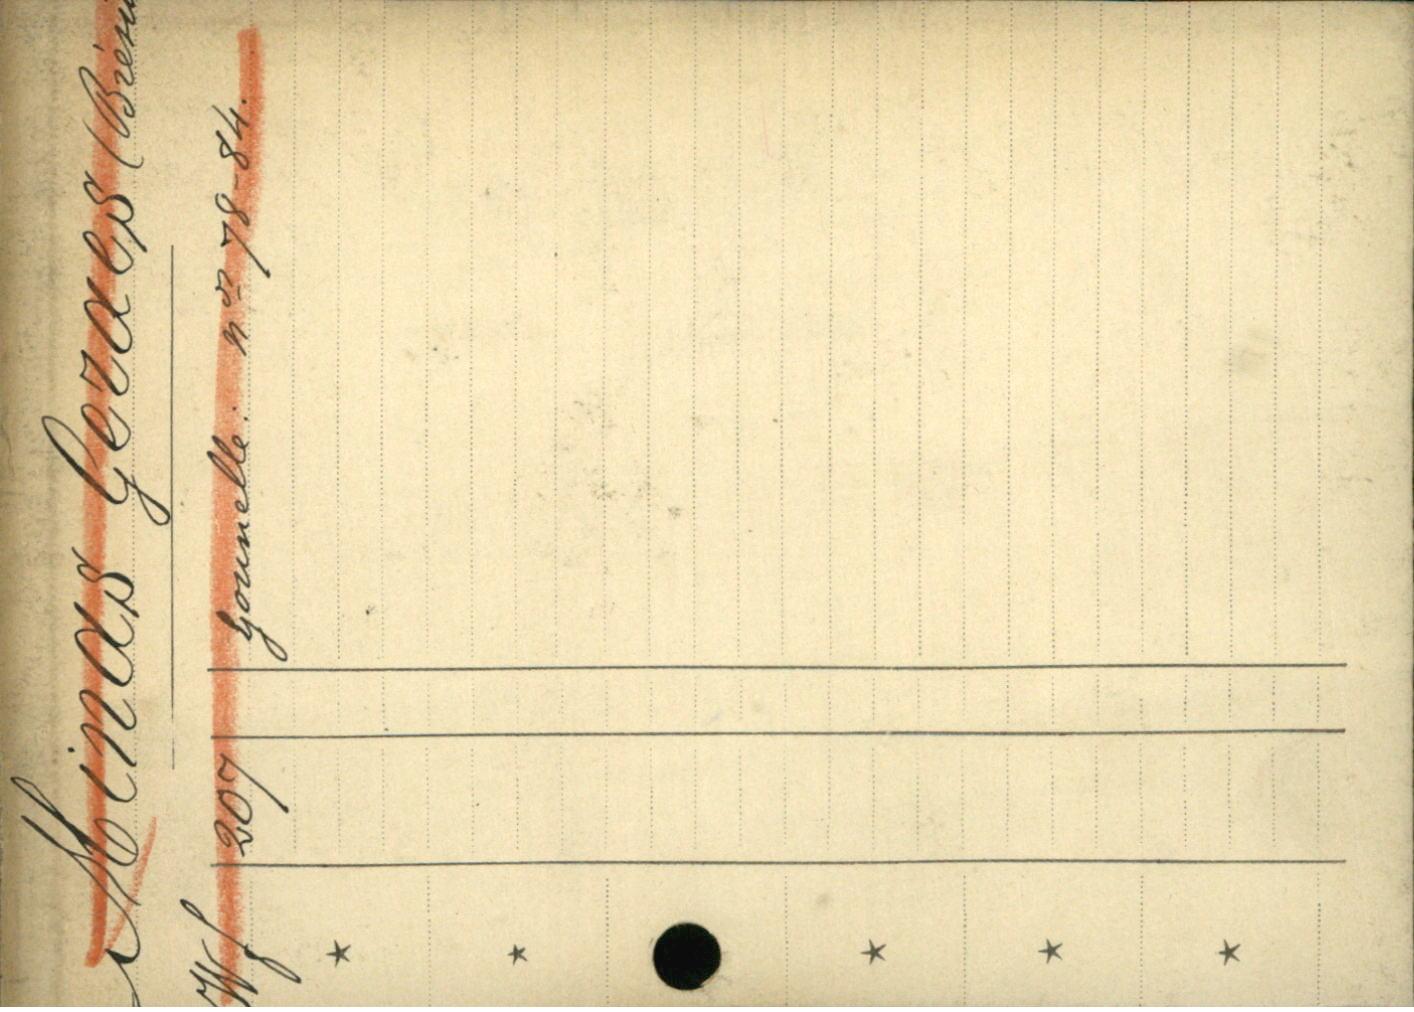 Minas Geraes (Brésil
Wf 207 Gounelle: nos 78-84.